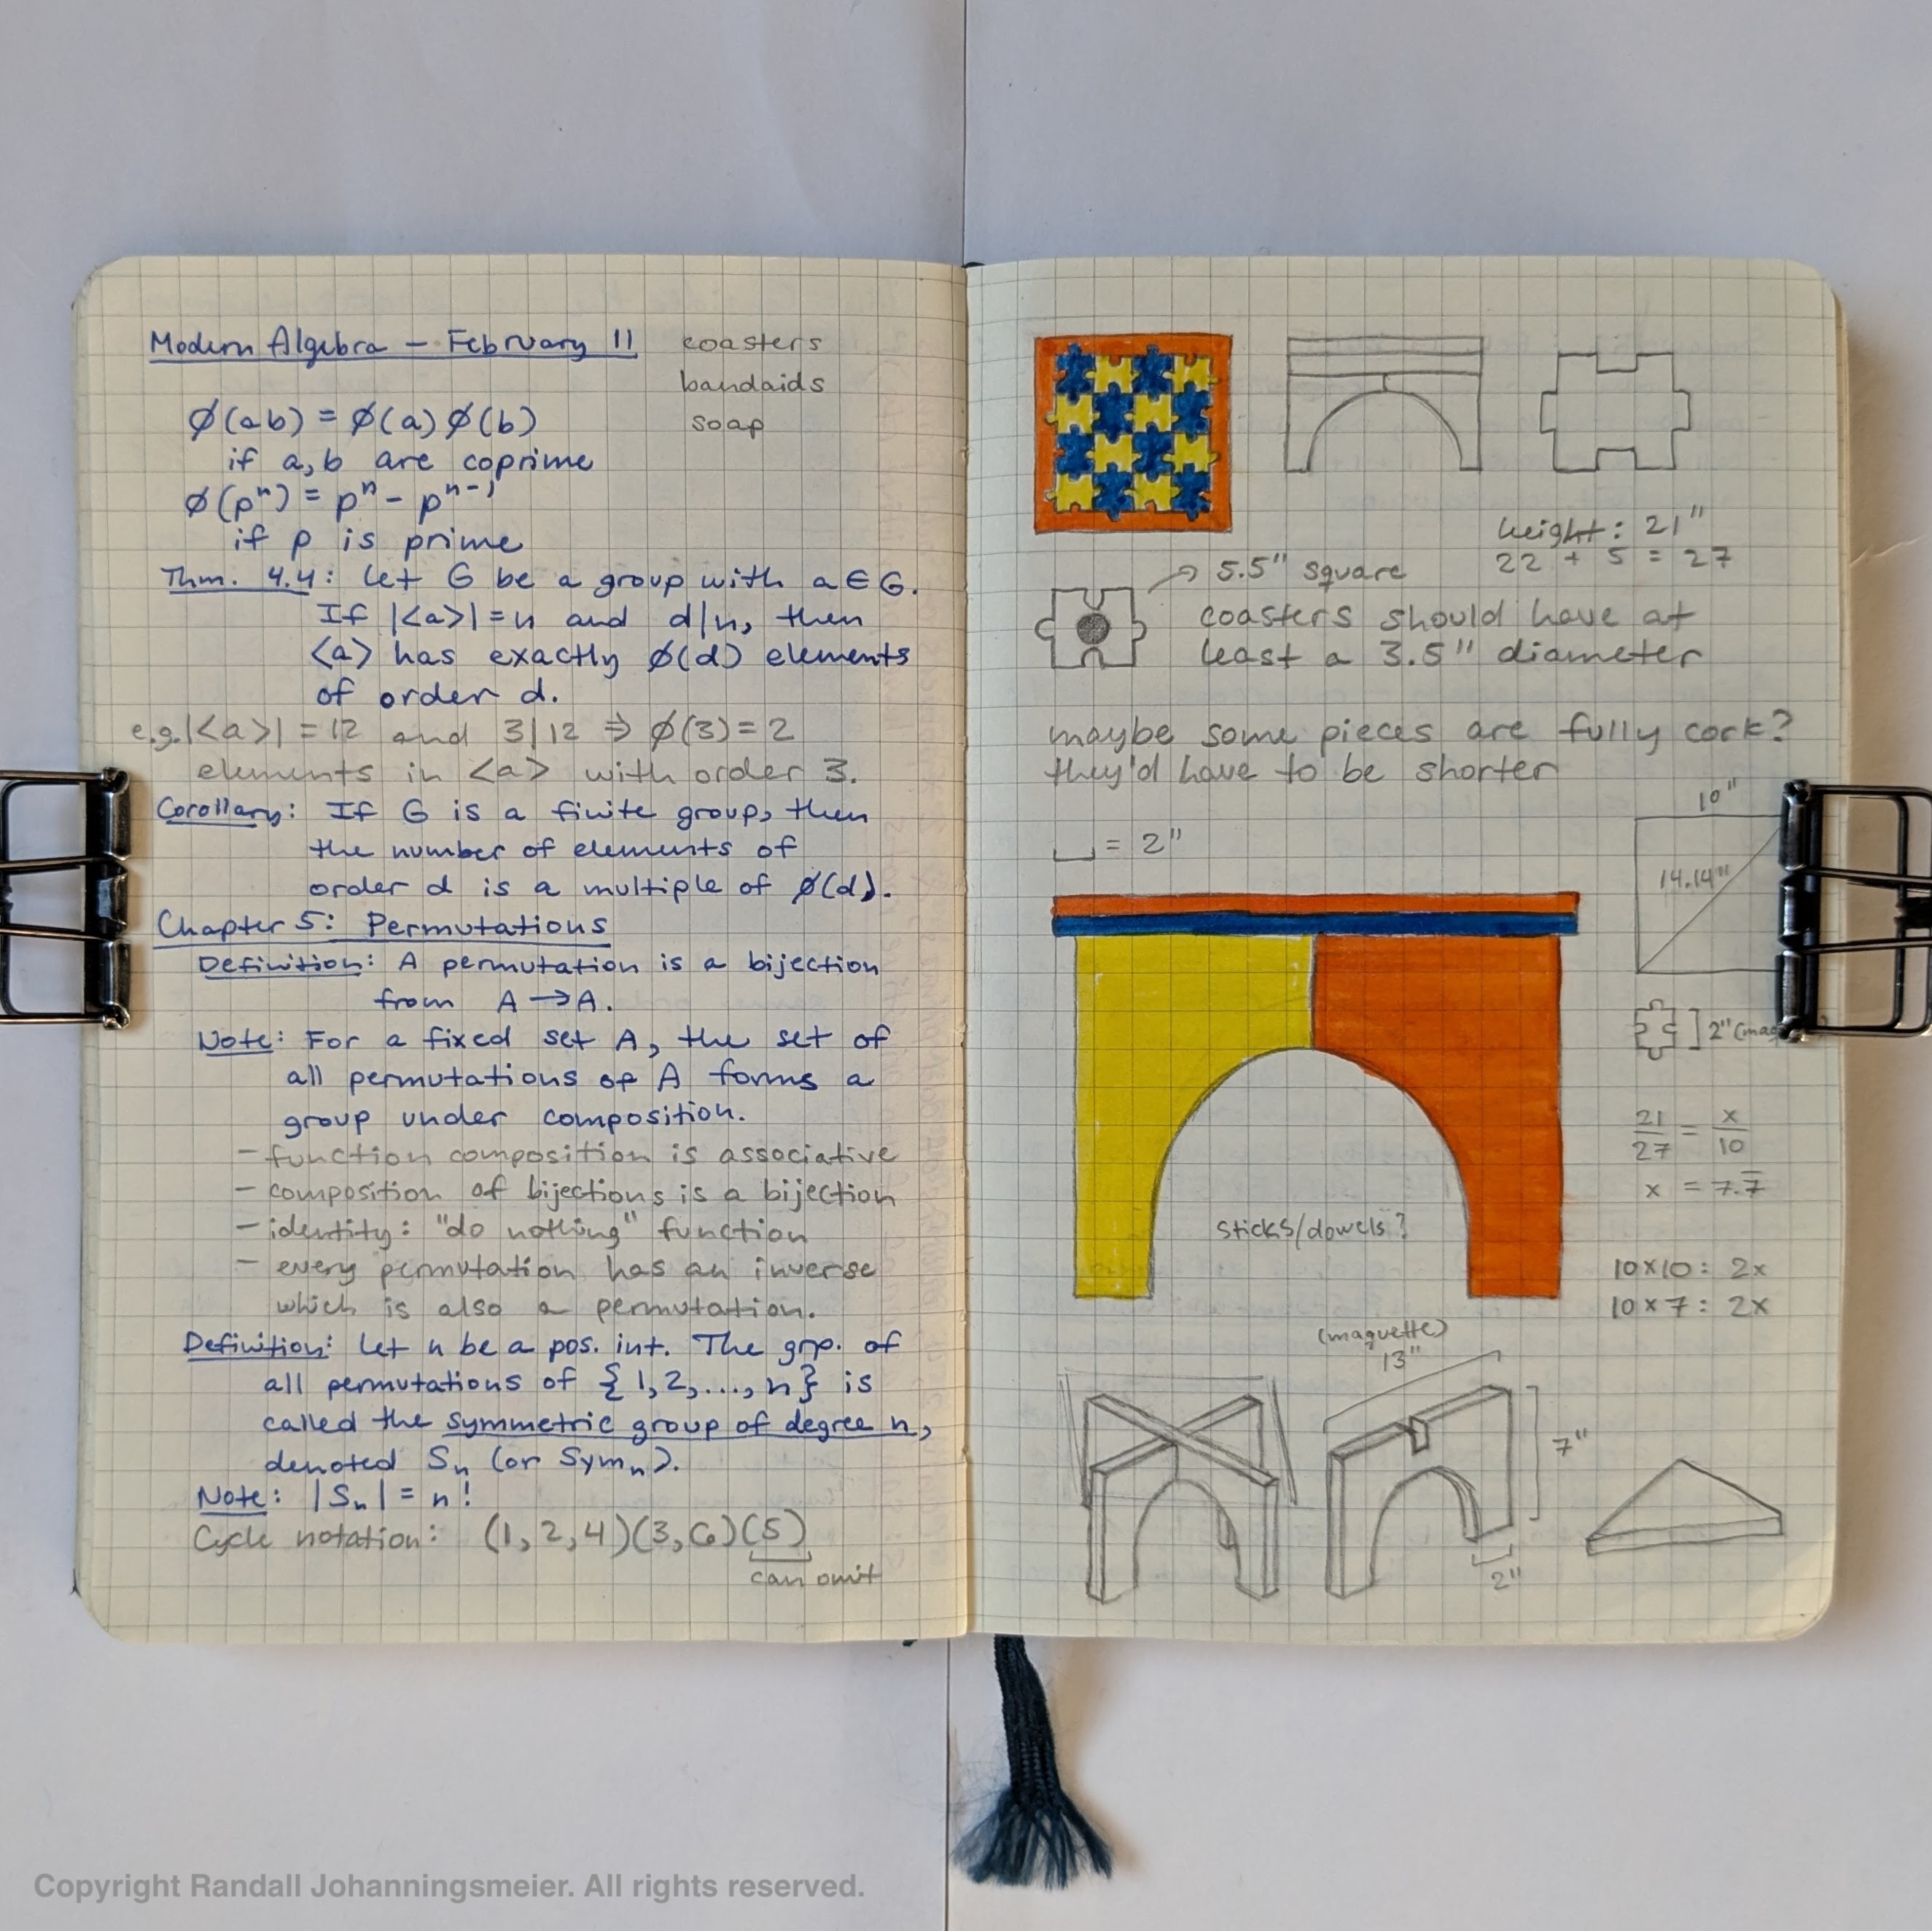 Modern Algebra — February 11
coasters
bandaids
soap
ϕ(ab) = ϕ(a)ϕ(b)
if a,b are coprime
ϕ(pⁿ) = pⁿ - pⁿ⁻¹
if p is prime
Thm. 4.4: Let G be a group with a∈G.
If |<a>|=n and d|n, then
<a> has exactly ϕ(d) elements
of order d.
e.g. |<a>| = 12 and 3|12 ⇒ ϕ(3)=2
elements in <a> with order 3.
Corollary: If G is a finite group, then
the number of elements of
order d is a multiple of ϕ(d).
Chapter 5: Permutations
Definition: A permutation is a bijection
from A → A.
Note: For a fixed set A, the set of
all permutations of A forms a
group under composition.
- function composition is associative
- composition of bijections is a bijection
- identity: "do nothing" function
- every permutation has an inverse
which is also a permutation.
Definition: Let n be a pos. int. The grp. of
all permutations of {1,2,...,n} is
called the symmetric group of degree n,
denoted Sₙ (or Symₙ).
Note: |Sₙ| = n!
Cycle notation: (1,2,4)(3,6)(5)
can omit
height: 21"
22 + 5 = 27
5.5" square
coasters should have at
least a 3.5" diameter
maybe some pieces are fully cork?
they'd have to be shorter
10"
= 2"
14.14"
2"
21/27 = x/10
x = 7.7̅
sticks/dowels?
10x10: 2x
10x7: 2x
(maquette)
13"
7"
2"
Copyright Randall Johanningsmeier. All rights reserved.